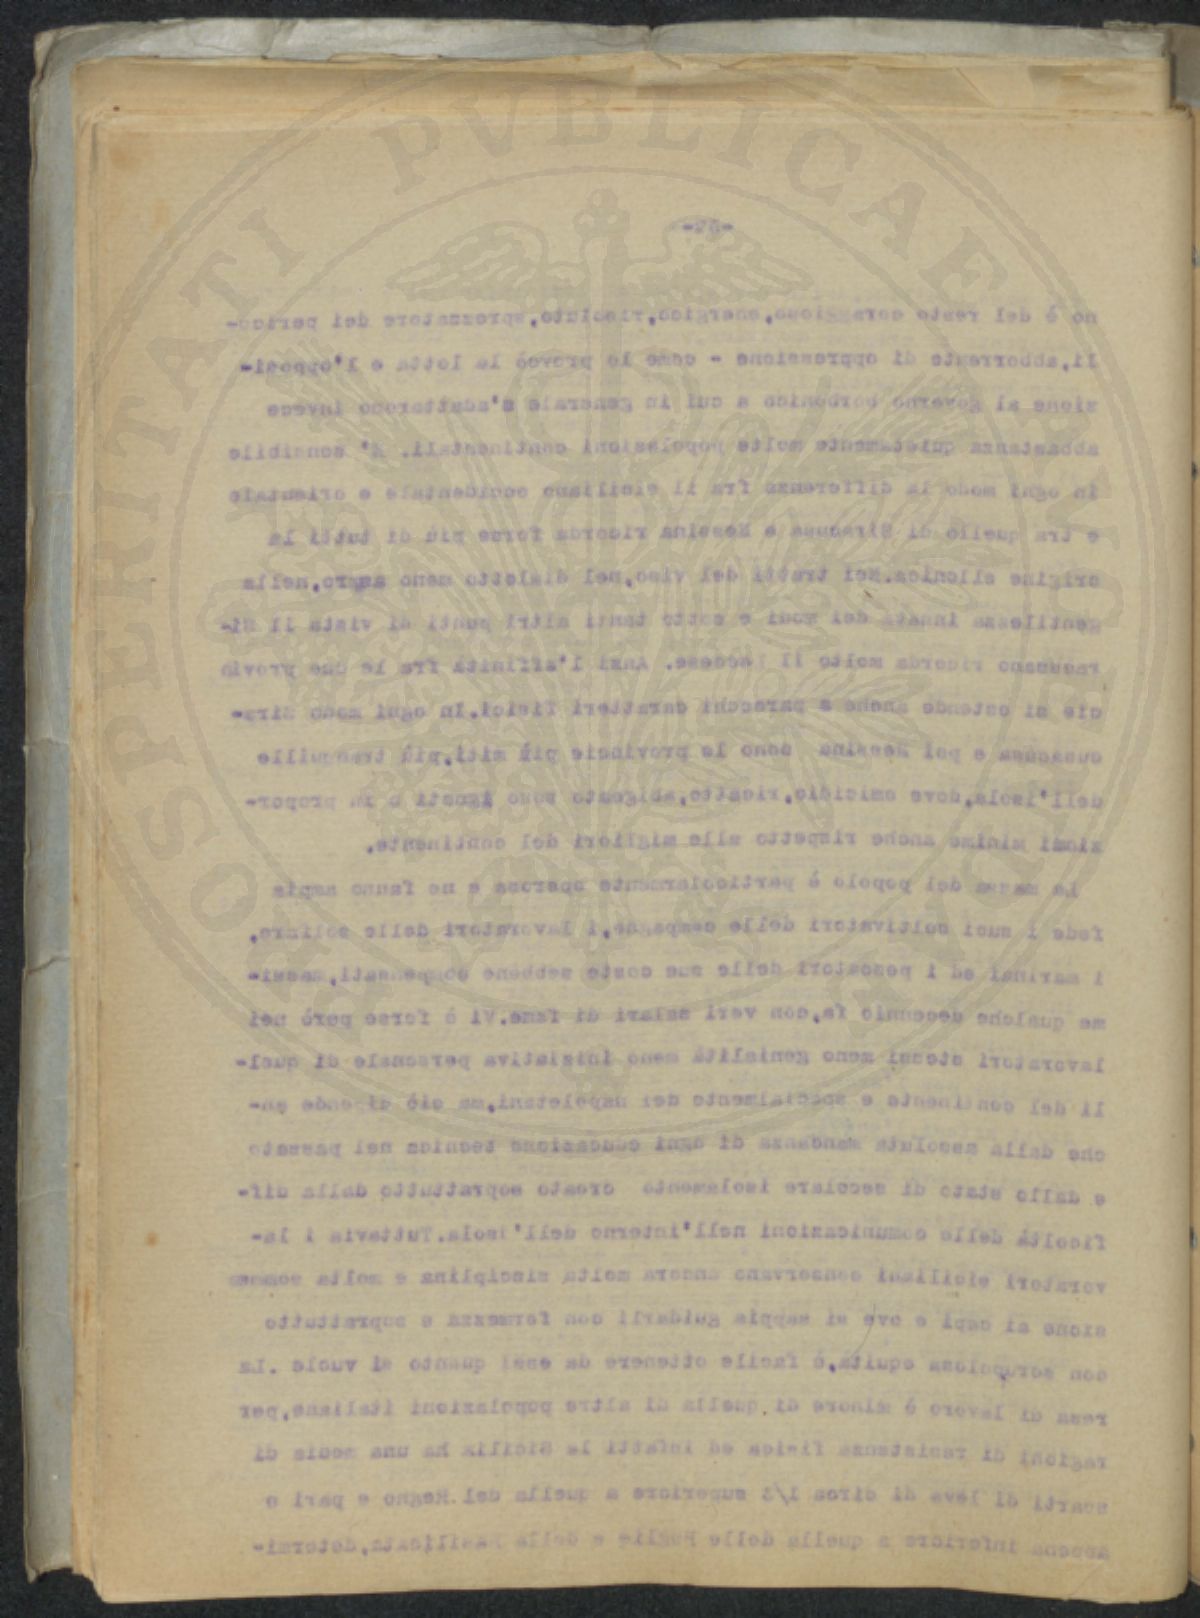 PROSPERITATI PVBLICAE AVGENDAE
no è del resto coraggioso,energico,risoluto,sprezzatore dei perico-
li,abborrente di oppressione - come lo provcò la lotta e l'opposi-
zione al governo borbonico a cui in generale s'adattarono invece
abbastanza quietamente molte popolazioni continentali. E' sensibile
in ogni modo la differenza fra il siciliano occidentale e orientale
e tra quello di Siracusa e Messina ricorda forse più di tutti la
origine ellenica.Nei tratti del viso,nel dialetto meno aspro,nella
gentilezza innata dei modi e sotto tanti altri punti di vista il Si-
racusano ricorda molto il Leccese. Anzi l'affinità fra le due provin
cie si estende anche a parecchi caratteri fisici.In ogni modo Sira-
cusacusa e poi Messina sono le provincie più miti,più tranquille
dell'isola,dove omicidio,ricatto,abigeato sono ignoti o in propor-
zioni minime anche rispetto alle migliori del continente.
La massa del popolo è particolarmente operosa e ne fanno ampia
fede i suoi coltivatori delle campagne,i lavoratori delle solfare,
i marinai ed i pescatori delle sue coste sebbene compensati,massi-
me qualche decennio fa,con veri salari di fame.Vi è forse però nei
lavoratori stessi meno genialità meno iniziativa personale di quel-
li del continente e specialmente dei napoletani,ma ciò dipende an-
che dalla assoluta mancanza di ogni educazione tecnica nel passato
e dallo stato di secolare isolamento creato soprattutto dalla dif-
ficoltà delle comunicazioni nell'interno dell'isola.Tuttavia i la-
voratori siciliani conservano ancora molta disciplina e molta sommes
sione ai capi e ove si sappia guidarli con fermezza e soprattutto
con scrupolosa equità,è facile ottenere da essi quanto si vuole .La
resa di lavoro è minore di quella di altre popolazioni italiane,per
ragioni di resistenza fisica ed infatti la Sicilia ha una media di
scarti di leva di circa 1/3 superiore a quella del Regno e pari o
appena inferiore a quella delle Puglie e della Basilicata,determi-